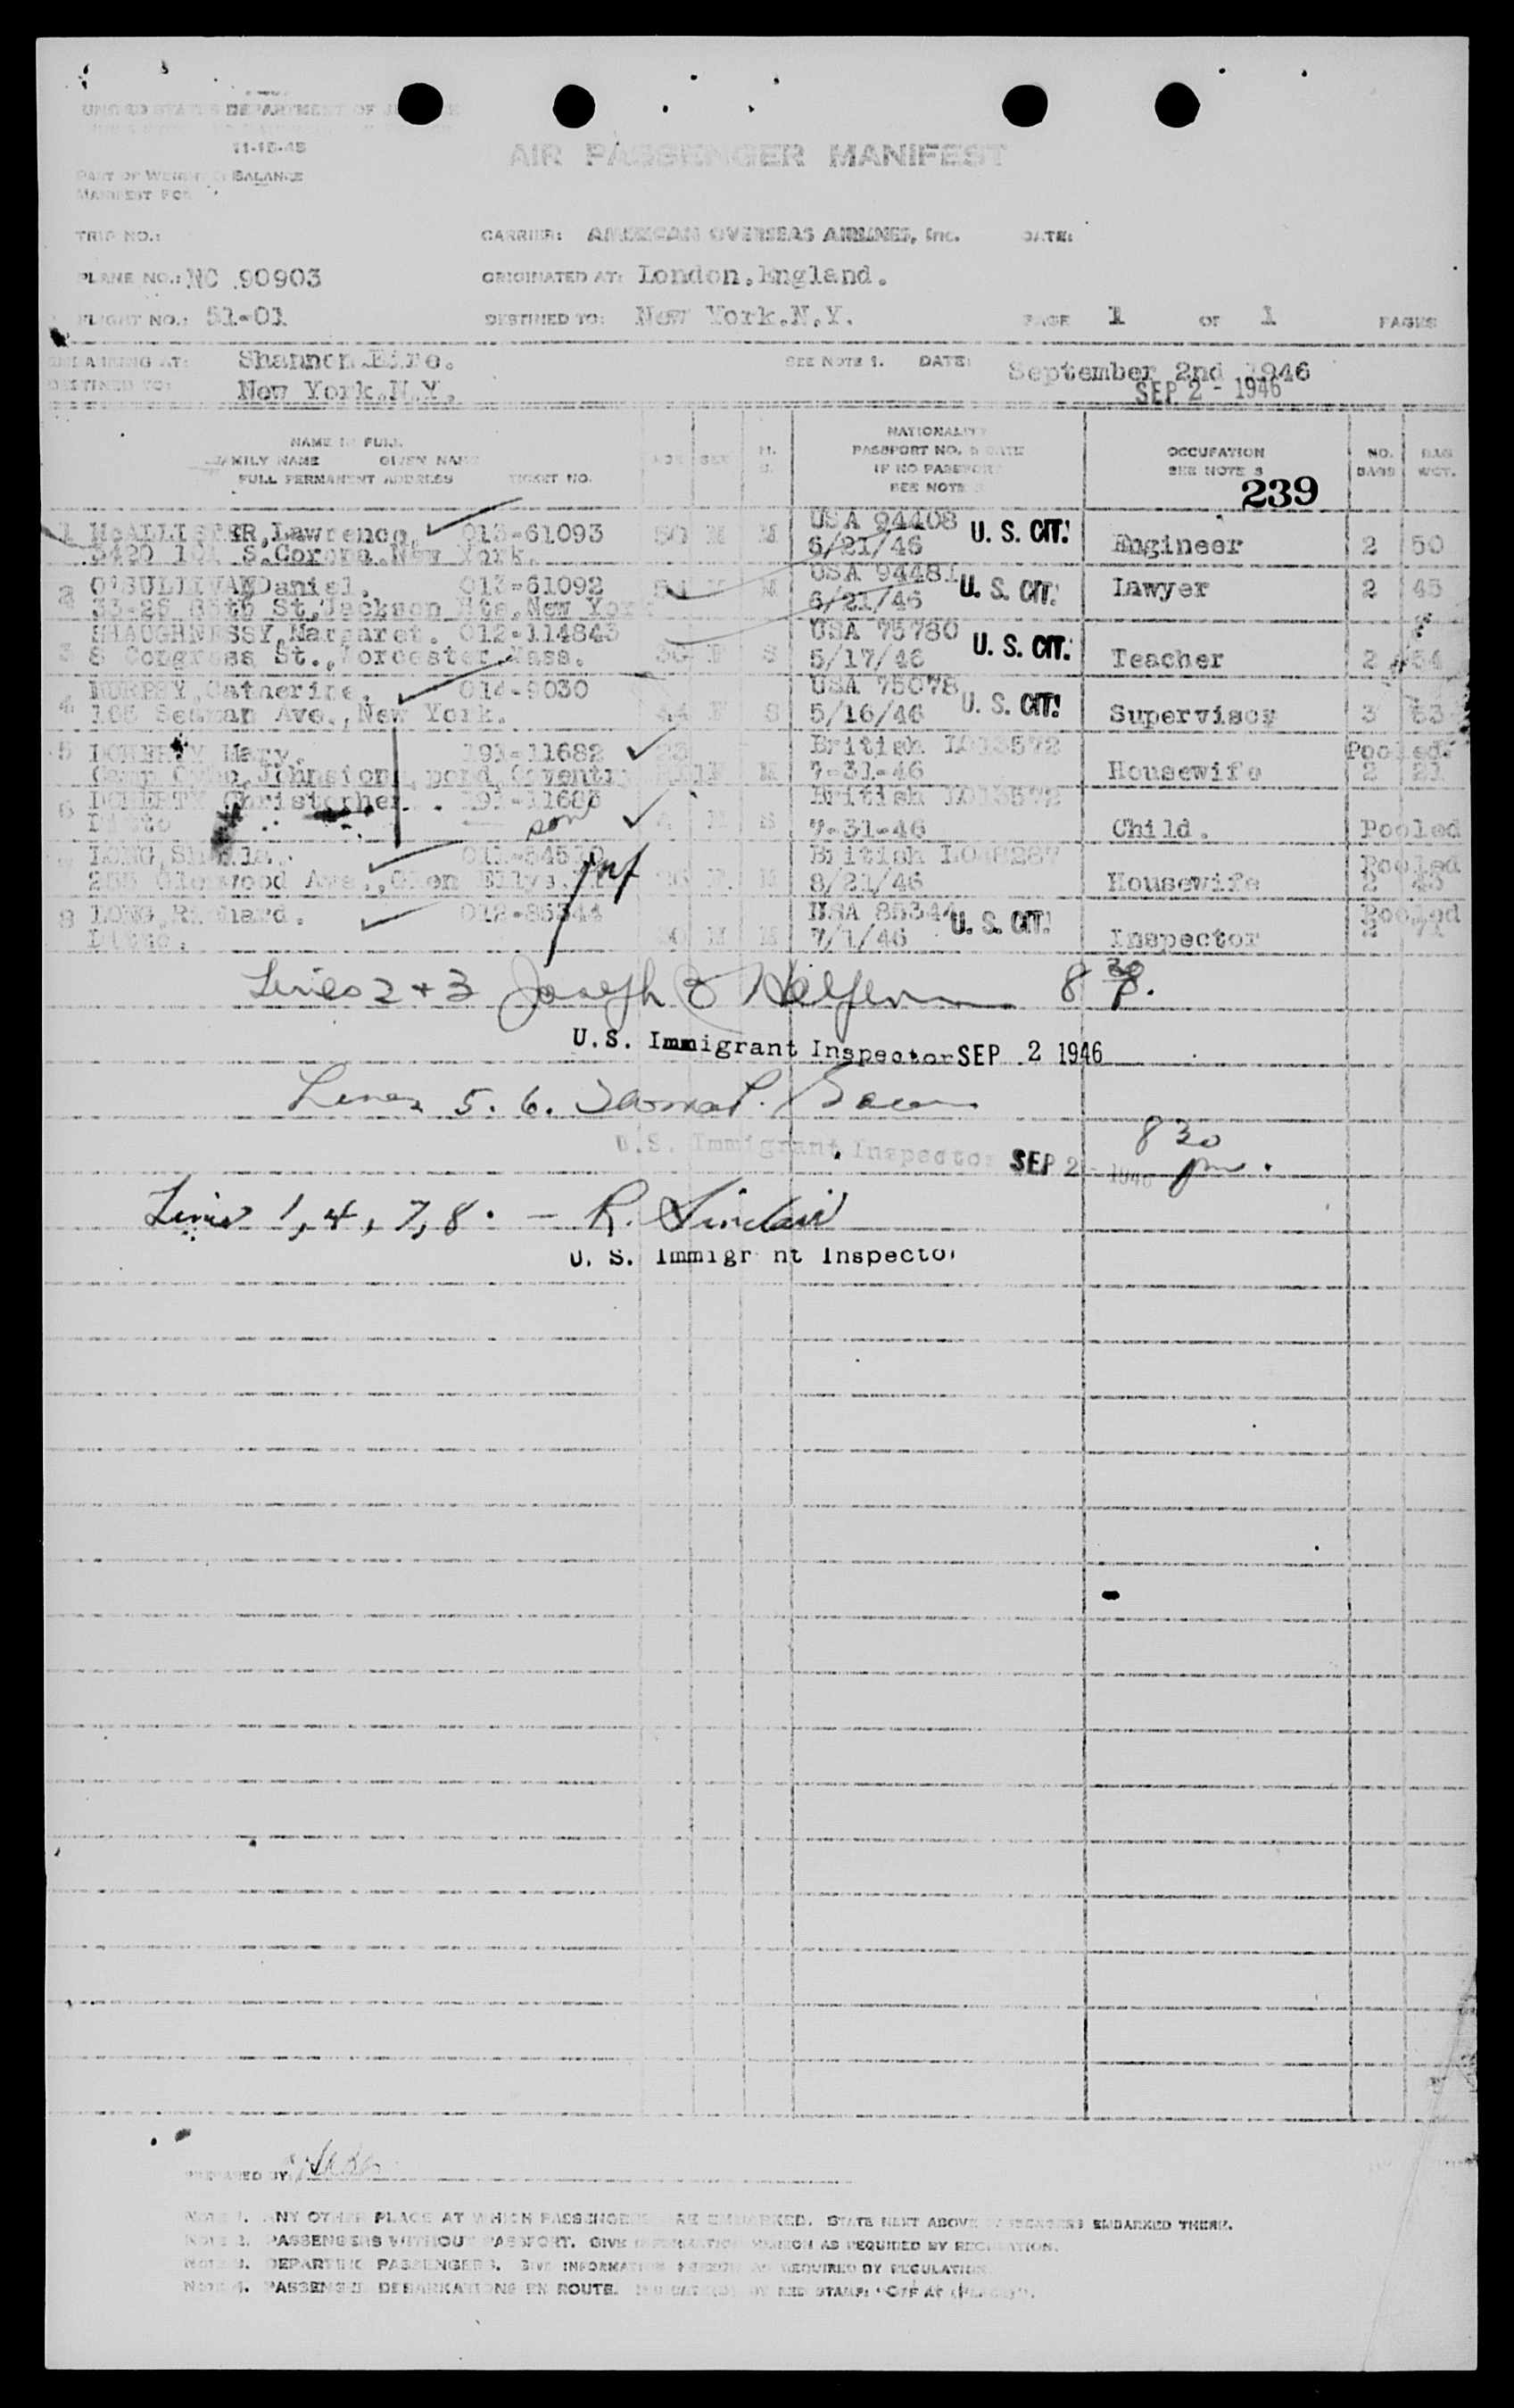 UNITED STATES DEPARTMENT OF
11-15-45
PART OF WEIGHT BALANCE
MANIFEST FOR
AIR PASSENGER MANIFEST
TRIP NO.: CARRIER: AMERICAN OVERSEAS AIRLINES, Inc. DATE:
PLANE NO.: NC 90903 ORIGINATED AT: London.England.
FLIGHT NO.: 51-01 DESTINED TO: New York.N.Y. PAGE 1 OF 1 PAGES
Shannon.Eire. SEE NOTE 1. DATE: September 2nd 1946
DESTINED TO: New York.N.Y. SEP 2 - 1946
NAME IN FULL
FAMILY NAME GIVEN NAME
FULL PERMANENT ADDRESS TICKET NO. AGE SEX
NATIONALITY
PASSPORT NO. & DATE
IF NO PASSPORT
SEE NOTE
OCCUPATION
SEE NOTE 3
NO. BAGS
BAG WGT.
239
1 McALLISTER,Lawrence. 013-61093 50 M M USA 94408 U. S. CIT. Engineer 2 50
S.Corona.New York. 6/21/46
2 O'SULLIVAN Daniel. 013-61092 M USA 94481 U. S. CIT. Lawyer 2 45
St,Jackson Hts,New York 6/21/46
3 SHAUGHNESSY,Margaret. 012-114843 F S USA 75780 U. S. CIT. Teacher 2
8 Congress St.,Worcester.Mass. 5/17/46
4 MURPHY,Catherine. 014-9030 44 F S USA 75078 U. S. CIT. Supervisor 3 53
165 Seaman Ave.,New York. 5/16/46
5 DOHERTY Mary. 191-11682 British Pooled.
Camp Johnstons, pond,Coventry F M 7-31-46 Housewife 2 21
6 DOHERTY Christopher. M S British
Ditto son 7-31-46 Child. Pooled
LONG, F M British Pooled
255 Glenwood Ave.,Glen Ellyn. 8/21/46 Housewife 2
8 LONG,Richard. 012-85344 USA 85344 U. S. CIT. Pooled
Ditto. M M 7/1/46 Inspector
Lines 2 + 3 Joseph 8 30 P.
U.S. Immigrant Inspector SEP 2 1946
Lines 5. 6. Thomas
U.S. Immigrant Inspector SEP 2 - 1946 8 30 pm.
Lines 1, 4, 7, 8. - R. Sinclair
U. S. Immigr nt Inspector
PREPARED BY
NOTE 1. ANY OTHER PLACE AT WHICH PASSENGERS ARE EMBARKED. STATE NEXT ABOVE PASSENGERS EMBARKED THERE.
NOTE 2. PASSENGERS WITHOUT PASSPORT. GIVE INFORMATION WHICH AS REQUIRED BY REGULATION.
NOTE 3. DEPARTING PASSENGERS. GIVE INFORMATION AS REQUIRED BY REGULATION
NOTE 4. PASSENGER DEBARKATIONS EN ROUTE. INDICATED BY RED STAMP: "OFF AT (PLACE)".